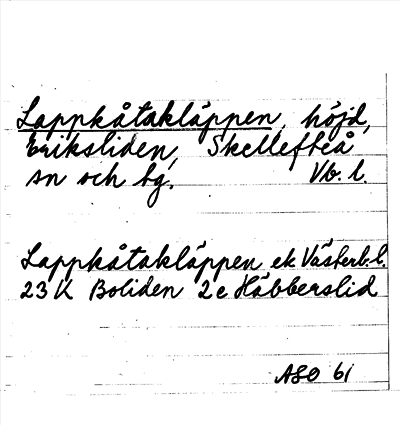 Lappkåtakläppen, höjd,
Eriksliden, Skellefteå
sn och hg. Vb. l.
Lappkåtakläppen ek Västerb. l.
23 K Boliden 2e Häbberslid
ASO 61